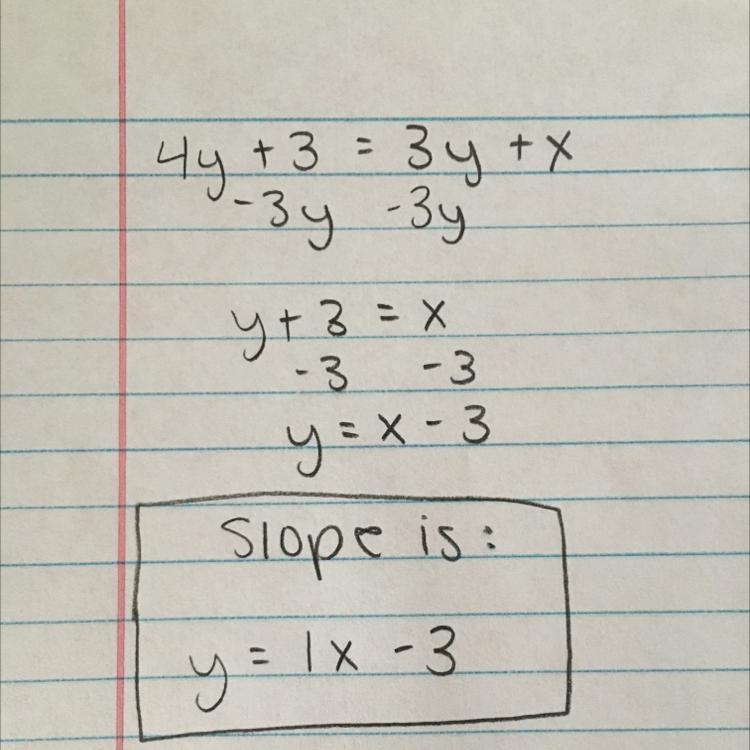 4y + 3 = 3y + x
-3y -3y
y + 3 = x
-3 -3
y = x - 3
Slope is:
y = 1x - 3